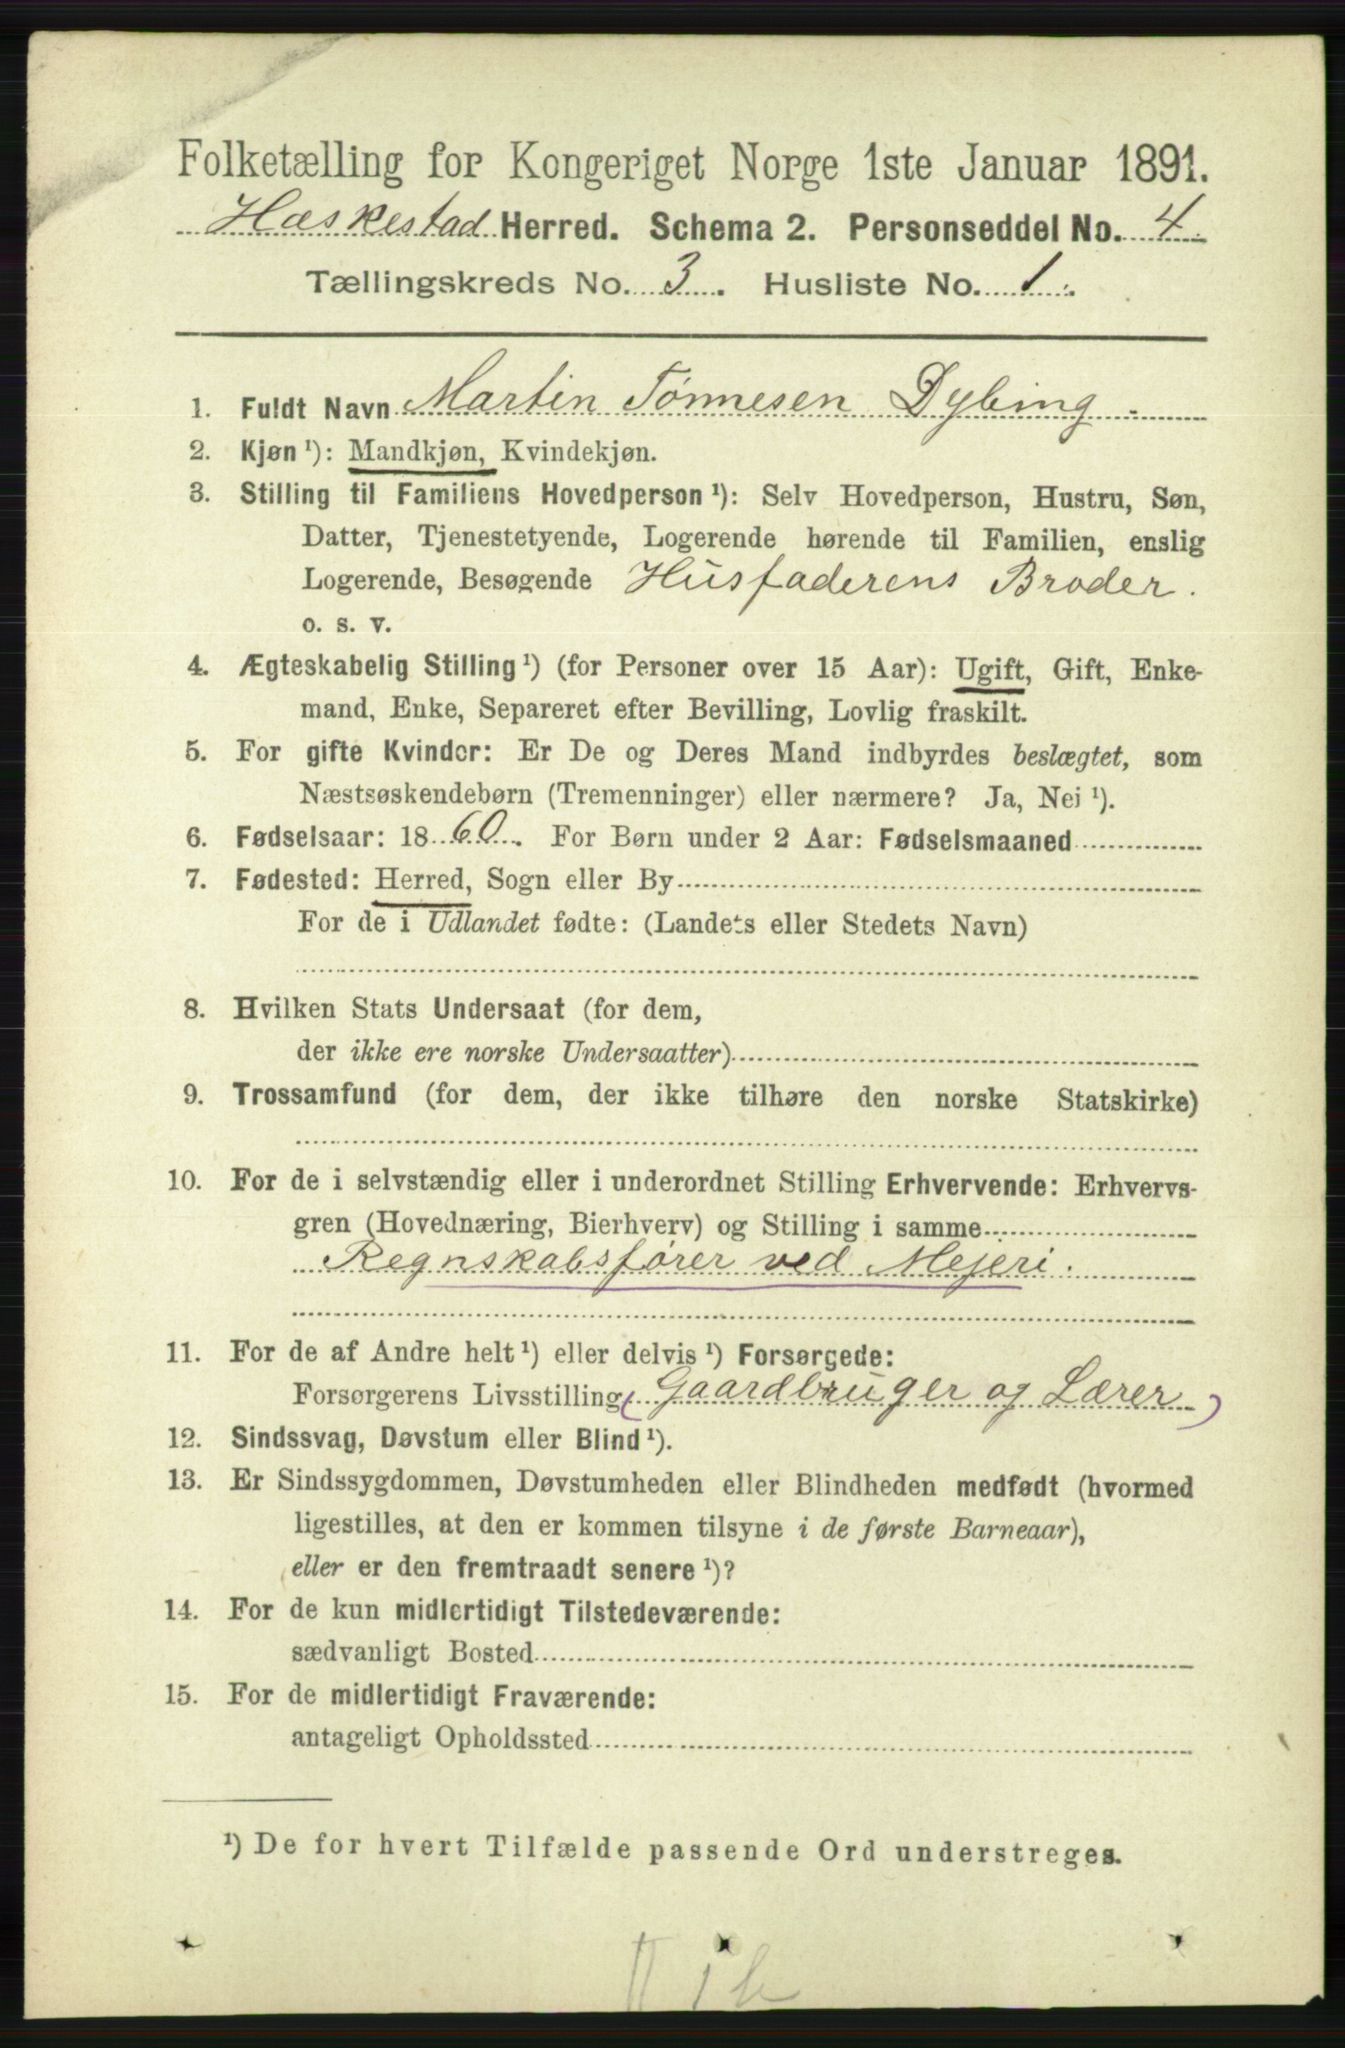 Folketælling for Kongeriget Norge 1ste Januar 1891.
Hæskestad Herred. Schema 2. Personseddel No. 4.
Tællingskreds No. 3. Husliste No. 1.
1. Fuldt Navn Martin Tønnesen Dybing.
2. Kjøn ¹): Mandkjøn, Kvindekjøn.
3. Stilling til Familiens Hovedperson ¹): Selv Hovedperson, Hustru, Søn,
Datter, Tjenestetyende, Logerende hørende til Familien, enslig
Logerende, Besøgende Husfaderens Broder.
o. s. v.
4. Ægteskabelig Stilling ¹) (for Personer over 15 Aar): Ugift, Gift, Enke-
mand, Enke, Separeret efter Bevilling, Lovlig fraskilt.
5. For gifte Kvinder: Er De og Deres Mand indbyrdes beslægtet, som
Næstsøskendebørn (Tremenninger) eller nærmere? Ja, Nei ¹).
6. Fødselsaar: 1860. For Børn under 2 Aar: Fødselsmaaned
7. Fødested: Herred, Sogn eller By
For de i Udlandet fødte: (Landets eller Stedets Navn)
8. Hvilken Stats Undersaat (for dem,
der ikke ere norske Undersaatter)
9. Trossamfund (for dem, der ikke tilhøre den norske Statskirke)
10. For de i selvstændig eller i underordnet Stilling Erhvervende: Erhvervs-
gren (Hovednæring, Bierhverv) og Stilling i samme
Regnskabsfører ved Mejeri.
11. For de af Andre helt ¹) eller delvis ¹) Forsørgede:
Forsørgerens Livsstilling (Gaardbruger og Lærer)
12. Sindssvag, Døvstum eller Blind ¹).
13. Er Sindssygdommen, Døvstumheden eller Blindheden medfødt (hvormed
ligestilles, at den er kommen tilsyne i de første Barneaar),
eller er den fremtraadt senere ¹)?
14. For de kun midlertidigt Tilstedeværende:
sædvanligt Bosted
15. For de midlertidigt Fraværende:
antageligt Opholdssted
¹) De for hvert Tilfælde passende Ord understreges.